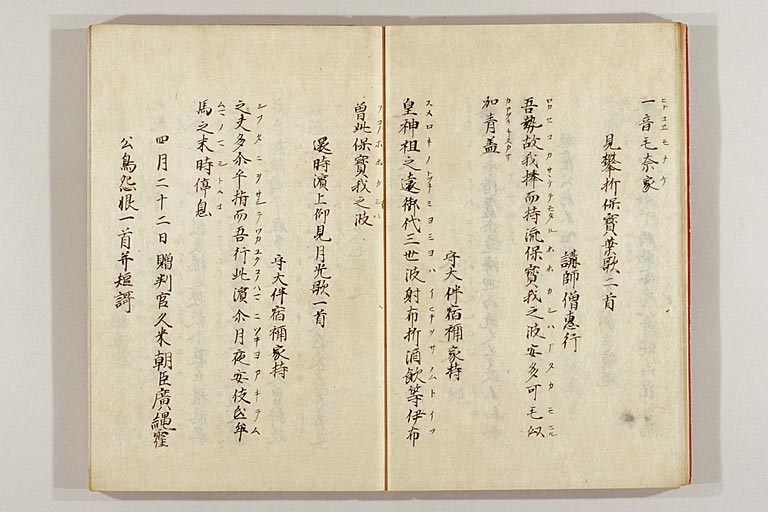 一音毛奈家
見攀折保寳葉歌二首
講師僧惠行
吾勢故我捧而持流保寳我之波安多可毛似
加青盖
守大伴宿祢家持
皇神祖之遠御代三世波射布折酒飲等伊布
曽此保寳我之波
還時濱上仰見月光歌一首
守大伴宿祢家持
之夫多尓乎指而吾行此濱尓月夜安伎氐牟
馬之末時停息
四月二十二日贈判官久米朝臣廣縄霍
公鳥怨恨一首并短謌